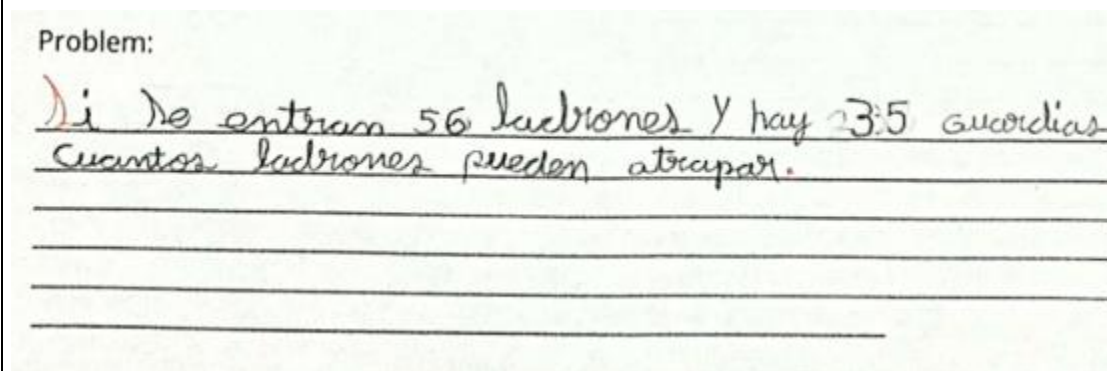 Problem:
Si se entran 56 ladrones y hay 35 guardias
cuantos ladrones pueden atrapar.